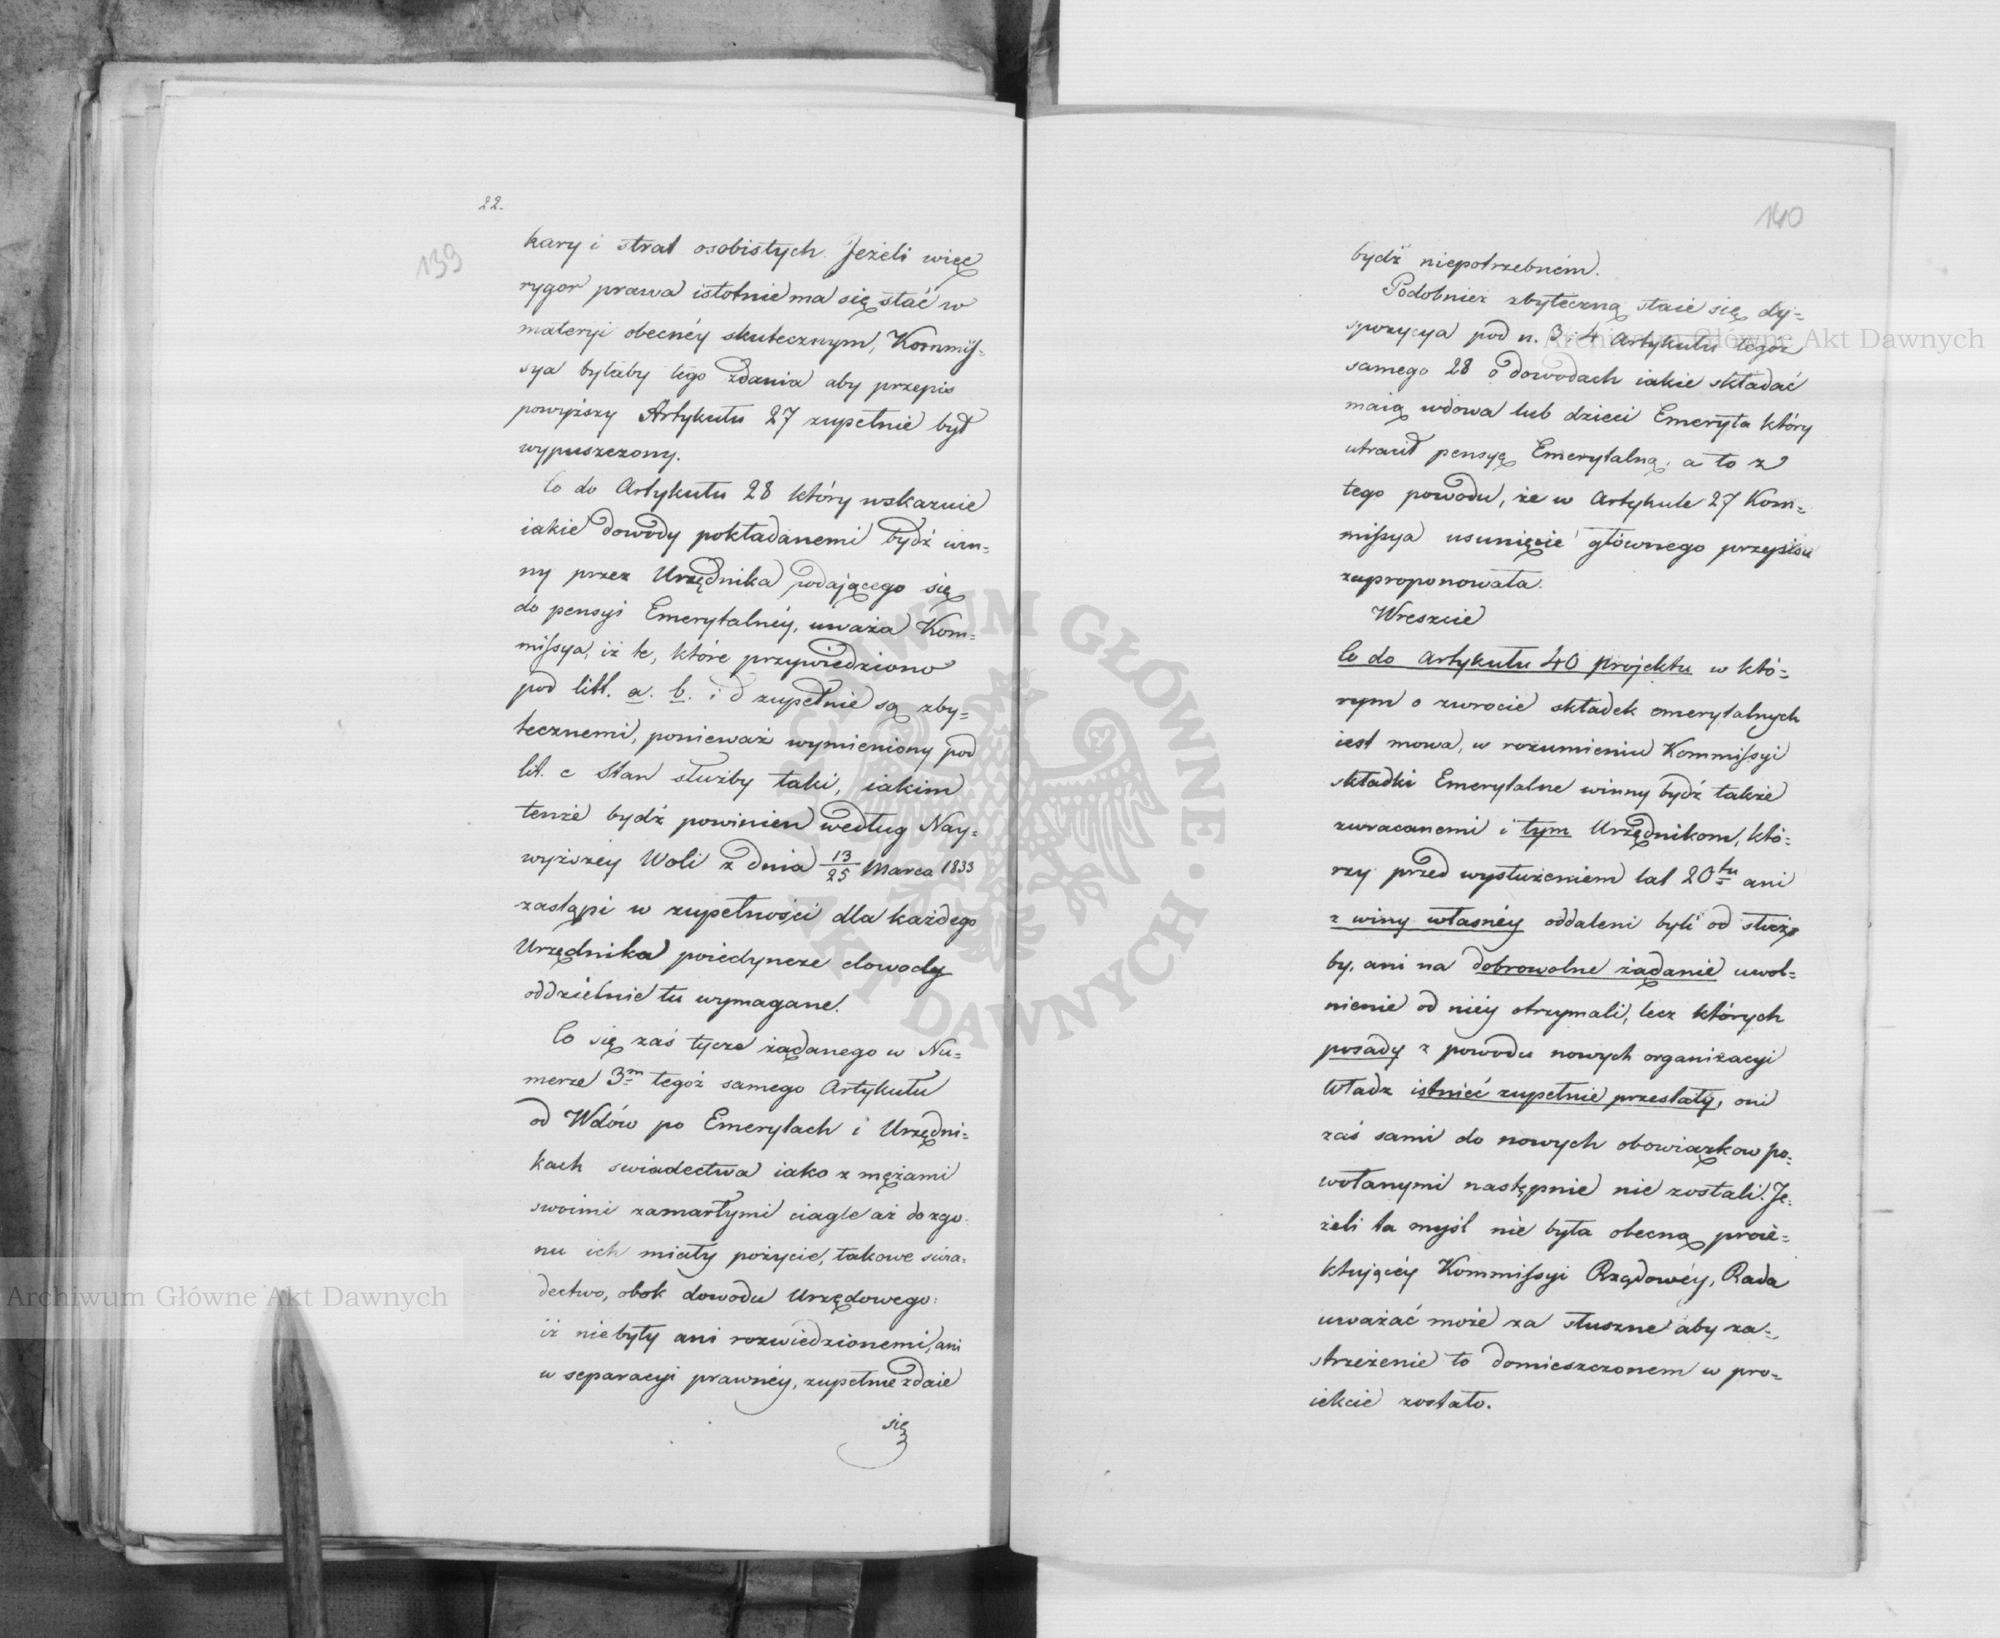 22.
139
kary i strat osobistych. Jeżeli więc
rygor prawa istotnie ma się stać w
materyi obecnéy skutecznym, Kommis-
sya byłaby tego zdania aby przepis
powyższy Artykułu 27 zupełnie był
wypuszczony.
Co do Artykułu 28 który wskazuie
iakie dowody pokładanemi bydź win-
ny przez Urzędnika podającego się
do pensyi Emerytalnéy, uważa Kom-
missya, iż te, które przywiedziono
pod litt. a. b. i d zupełnie są zby-
tecznemi, ponieważ wymieniony pod
lit. c Stan służby taki, iakim
tenże bydź powinien według Nay-
wyższéy Woli z dnia 13/25 Marca 1833
zastąpi w zupełności dla każdego
Urzędnika poiedyncze dowody
oddzielnie tu wymagane.
Co się zaś tycze żądanego w Nu-
merze 3m tegoż samego Artykułu
od Wdów po Emerytach i Urzędni-
kach swiadectwa iako z mężami
swoimi zamarłymi ciagle aż do zgo-
nu ich miały pożycie, takowe swia-
dectwo, obok dowodu Urzędowego:
iż nie były ani rozwiedzionemi, ani
w separacyi prawnéy, zupełnie zdaie
się
140
bydź niepotrzebném.
Podobnież zbyteczną staie się dy-
spozycya pod n. 3 i 4 Artykułu tegoż
samego 28 o dowodach iakie składać
maią wdowa lub dzieci Emeryta który
utracił pensyę Emerytalną, a to z
tego powodu, że w Artykule 27 Kom-
missya usunięcie głównego przepisu
zaproponowała.
Wreszcie
Co do Artykułu 40 projektu w któ-
rym o zwrocie składek emerytalnych
iest mowa, w rozumieniu Kommissyi
składki Emerytalne winny bydź także
zwracanemi i tym Urzędnikom, któ-
rzy przed wysłużeniem lat 20tu ani
z winy własnéy oddaleni byli od służ-
by, ani na dobrowolne żądanie uwol-
nienie od niéy otrzymali, lecz których
posady z powodu nowych organizacyi
Władz istnieć zupełnie przestały, oni
zaś sami do nowych obowiązkow po-
wołanymi następnie nie zostali. Je-
żeli ta myśl nie była obecną proie-
ktującéy Kommissyi Rządowéy, Rada
uważać może za słuszne aby za-
strzeżenie to domieszczonem w pro-
iekcie zostało.
Archiwum Główne Akt Dawnych
Archiwum Główne Akt Dawnych
ARCHIWUM GŁÓWNE · AKT DAWNYCH ·